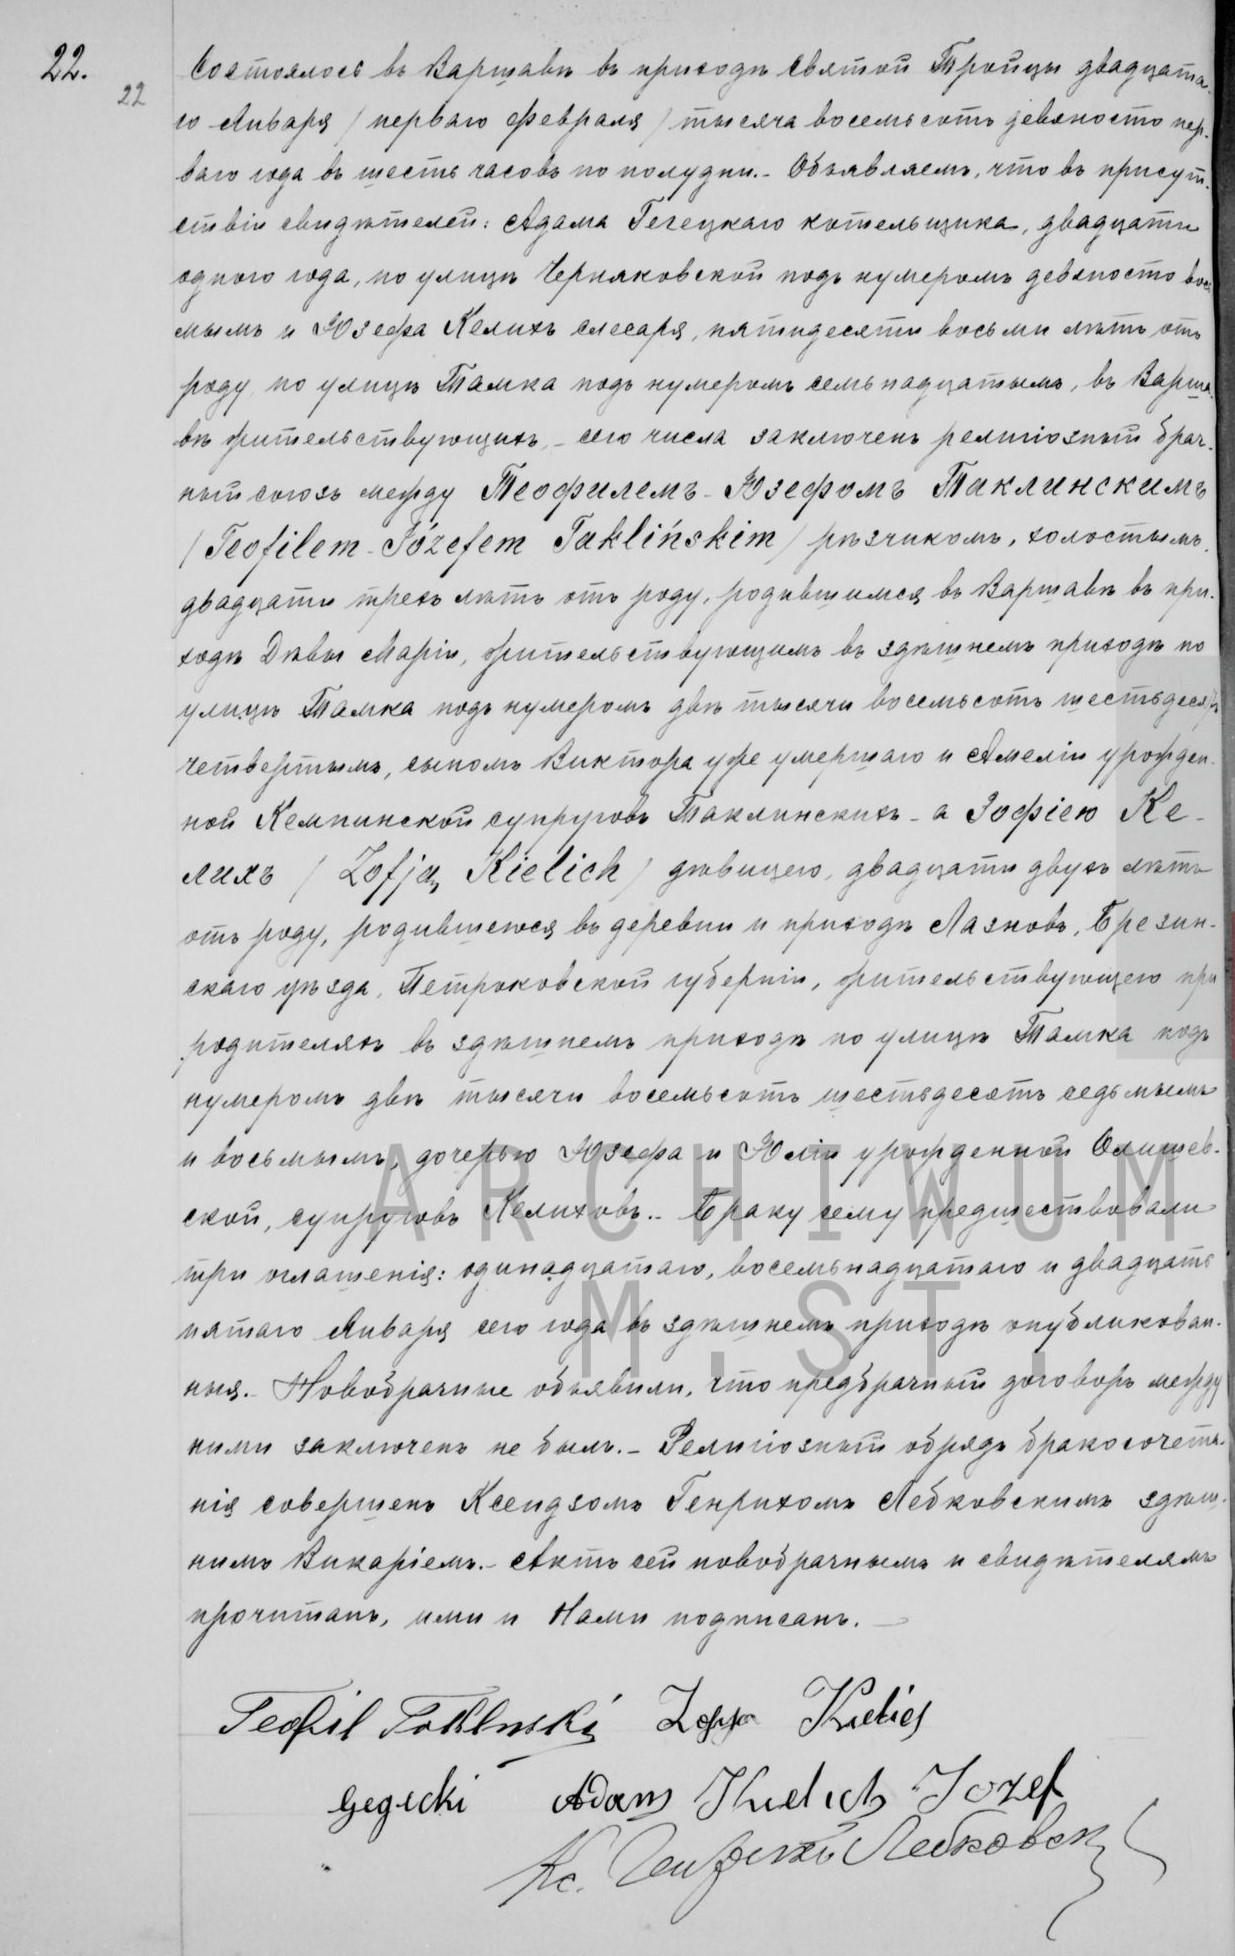 22.
22
Состоялось въ Варшавѣ въ приходѣ Святой Тройцы двадцата-
го Января / перваго Февраля / тысяча восемьсотъ девяносто пер-
ваго года въ шесть часовъ по полудни.- Объявляемъ, что въ присут-
ствіи свидѣтелей: Адама Гегецкаго котельщика, двадцати
одного года, по улицѣ Черняковской подъ нумеромъ девяносто вось
мымъ и Юзефа Келихъ слесаря, пятидесяти восьми лѣтъ отъ
роду, по улицѣ Тамка подъ нумеромъ семьнадцатымъ, въ Варша-
вѣ жительствующихъ,- сего числа заключенъ религіозный брач-
ный союзъ между Теофилемъ-Юзефомъ Таклинскимъ
/ Teofilem-Józefem Taklińskim / рѣзчикомъ, холостымъ,
двадцати трехъ лѣтъ отъ роду, родившимся въ Варшавѣ въ при-
ходѣ Дѣвы Маріи, жительствующимъ въ здѣшнемъ приходѣ по
улицѣ Тамка подъ нумеромъ двѣ тысячи восемьсотъ шестьдесятъ
четвертымъ, сыномъ Виктора уже умершаго и Амеліи урожден-
ной Кемпинской супруговъ Таклинскихъ - а Зофіею Ке-
лихъ / Zofją Kielich / дѣвицею, двадцати двухъ лѣтъ
отъ роду, родившеюся въ деревни и приходѣ Лазновъ, Брезин-
скаго уѣзда, Петроковской губерніи, жительствующею при
родителяхъ въ здѣшнемъ приходѣ по улицѣ Тамка подъ
нумеромъ двѣ тысячи восемьсотъ шестьдесятъ седьмымъ
и восьмымъ, дочерью Юзефа и Юліи урожденной Олишев-
ской, супруговъ Келиховъ.- Браку сему предшествовали
три оглашенія: одинадцатаго, восемьнадцатаго и двадцать
пятаго Января сего года въ здѣшнемъ приходѣ опубликован-
ныя.- Новобрачные объявили, что предбрачный договоръ между
ними заключенъ не былъ.- Религіозный обрядъ бракосочета-
нія совершенъ Ксендзомъ Генрихомъ Лебковскимъ здѣш-
нимъ Викаріемъ.- Актъ сей новобрачнымъ и свидѣтелямъ
прочитанъ, ими и Нами подписанъ.-
Teofil Taklinski Zofja Kielich
Gegecki Adam Kielich Jozef
Кс. Генрихъ Лебковск
ARCHIWUM
M.ST.